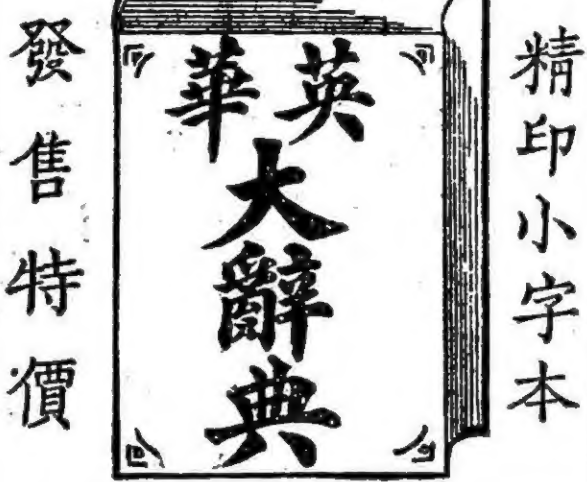 精印小字本
英華
大辭典
發售特價